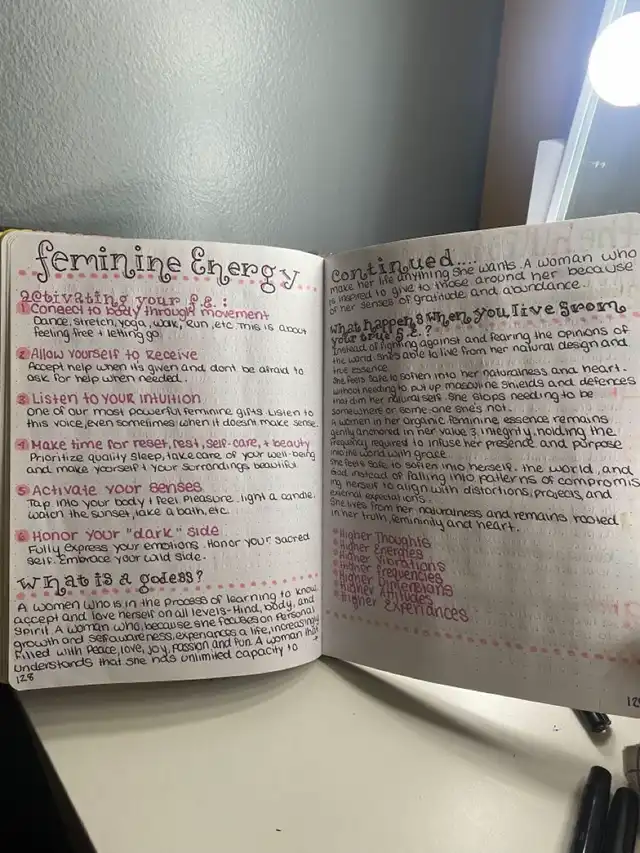 feminine Energy
activating your f.e.:
1 Connect to body through movement
Dance, stretch, yoga, walk, run, etc. This is about
feeling free + letting go.
2 Allow yourself to Receive
Accept help when its given and dont be afraid to
ask for help when needed.
3 Listen to your intuition
One of our most powerful feminine gifts. Listen to
this voice, even sometimes when it doesn't make sense.
4 Make time for reset, rest, self-care, + beauty
Prioritize quality sleep, take care of your well-being
and make yourself + your surrondings beautiful
5 Activate your senses
Tap into your body + feel pleasure. light a candle.
watch the sunset, take a bath, etc.
6 Honor your "dark" side
Fully express your emotions. Honor your sacred
self. Embrace your wild side.
What is a godess?
A women who is in the process of learning to know,
accept and love herself on all levels-Mind, body, and
spirit. A woman who, because she focuses on personal
growth and self awareness, experiances a life, increasingly
filled with peace, love, joy, passion and fun. A woman that
understands that she has unlimited capacity to
128
Continued....
make her life anything she wants. A woman who
is inspired to give to those around her because
of her senses of gratitude and abundance.
What happens when you live from
your true f.e.?
Instead of fighting against and fearing the opinions of
the world, she's able to live from her natural design and
true essence.
She feels safe to soften into her naturalness and heart.
without needing to put up masculine shields and defences
that dim her natural self. She stops needing to be
somewhere or some-one she's not.
A women in her organic feminine essence remains
gently anchored in her value's, integrity, holding the
frequency required to infuse her presence and purpose
into the world with grace.
She feels safe to soften into herself, the world, and
God instead of falling into patterns of compromis
ing herself to align with distortions, projects, and
external expectations.
She lives from her naturalness and remains rooted
in her truth, femininity and heart.
Higher Thoughts
Higher Energies
Higher Vibrations
Higher Frequencies
Higher Dimensions
Higher Attitudes
Higher Experiances